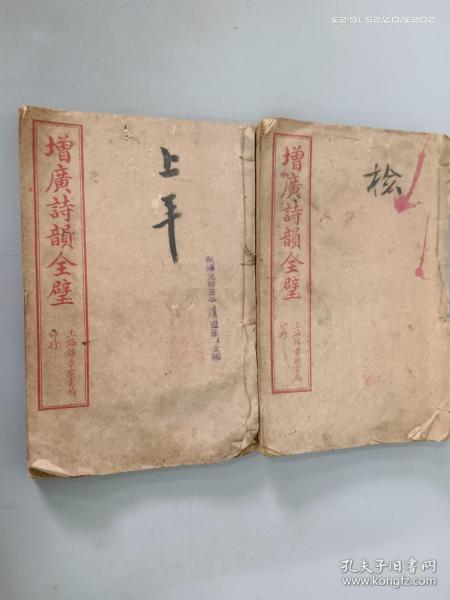 2023/07/25 16:23
增廣詩韻全璧
上海錦章圖書局
印行
上平
增廣詩韻全璧
上海錦章圖書局
印行
检
孔夫子旧书网
www.kongfz.com